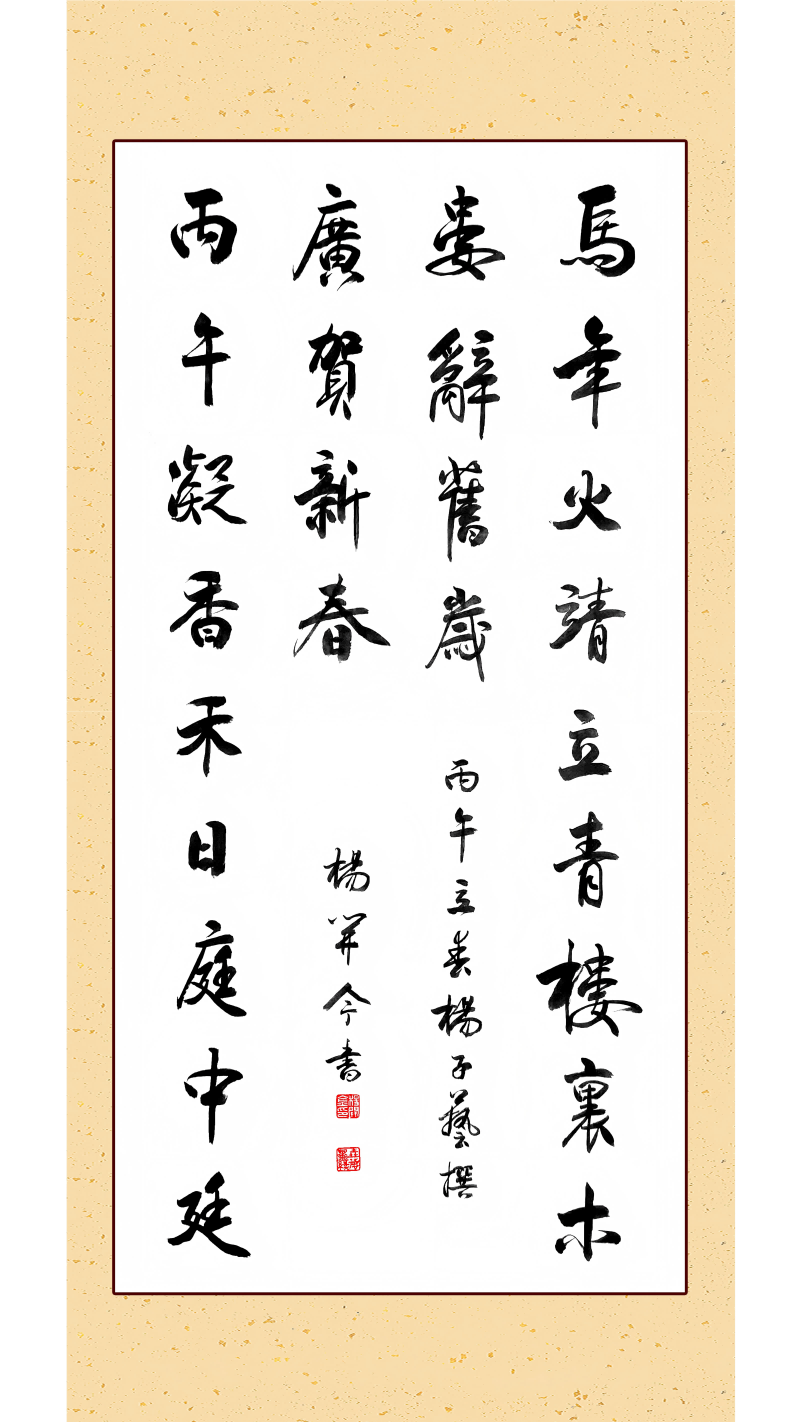 馬年火靖立青樓裏木
婁辭舊歲
丙午立春楊子藝撰
丙午凝香禾日庭中廷
廣賀新春
楊開今書